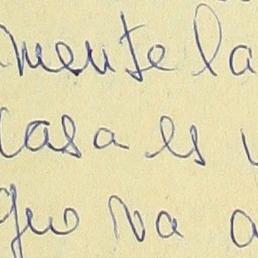 mente la
casa es
que va a